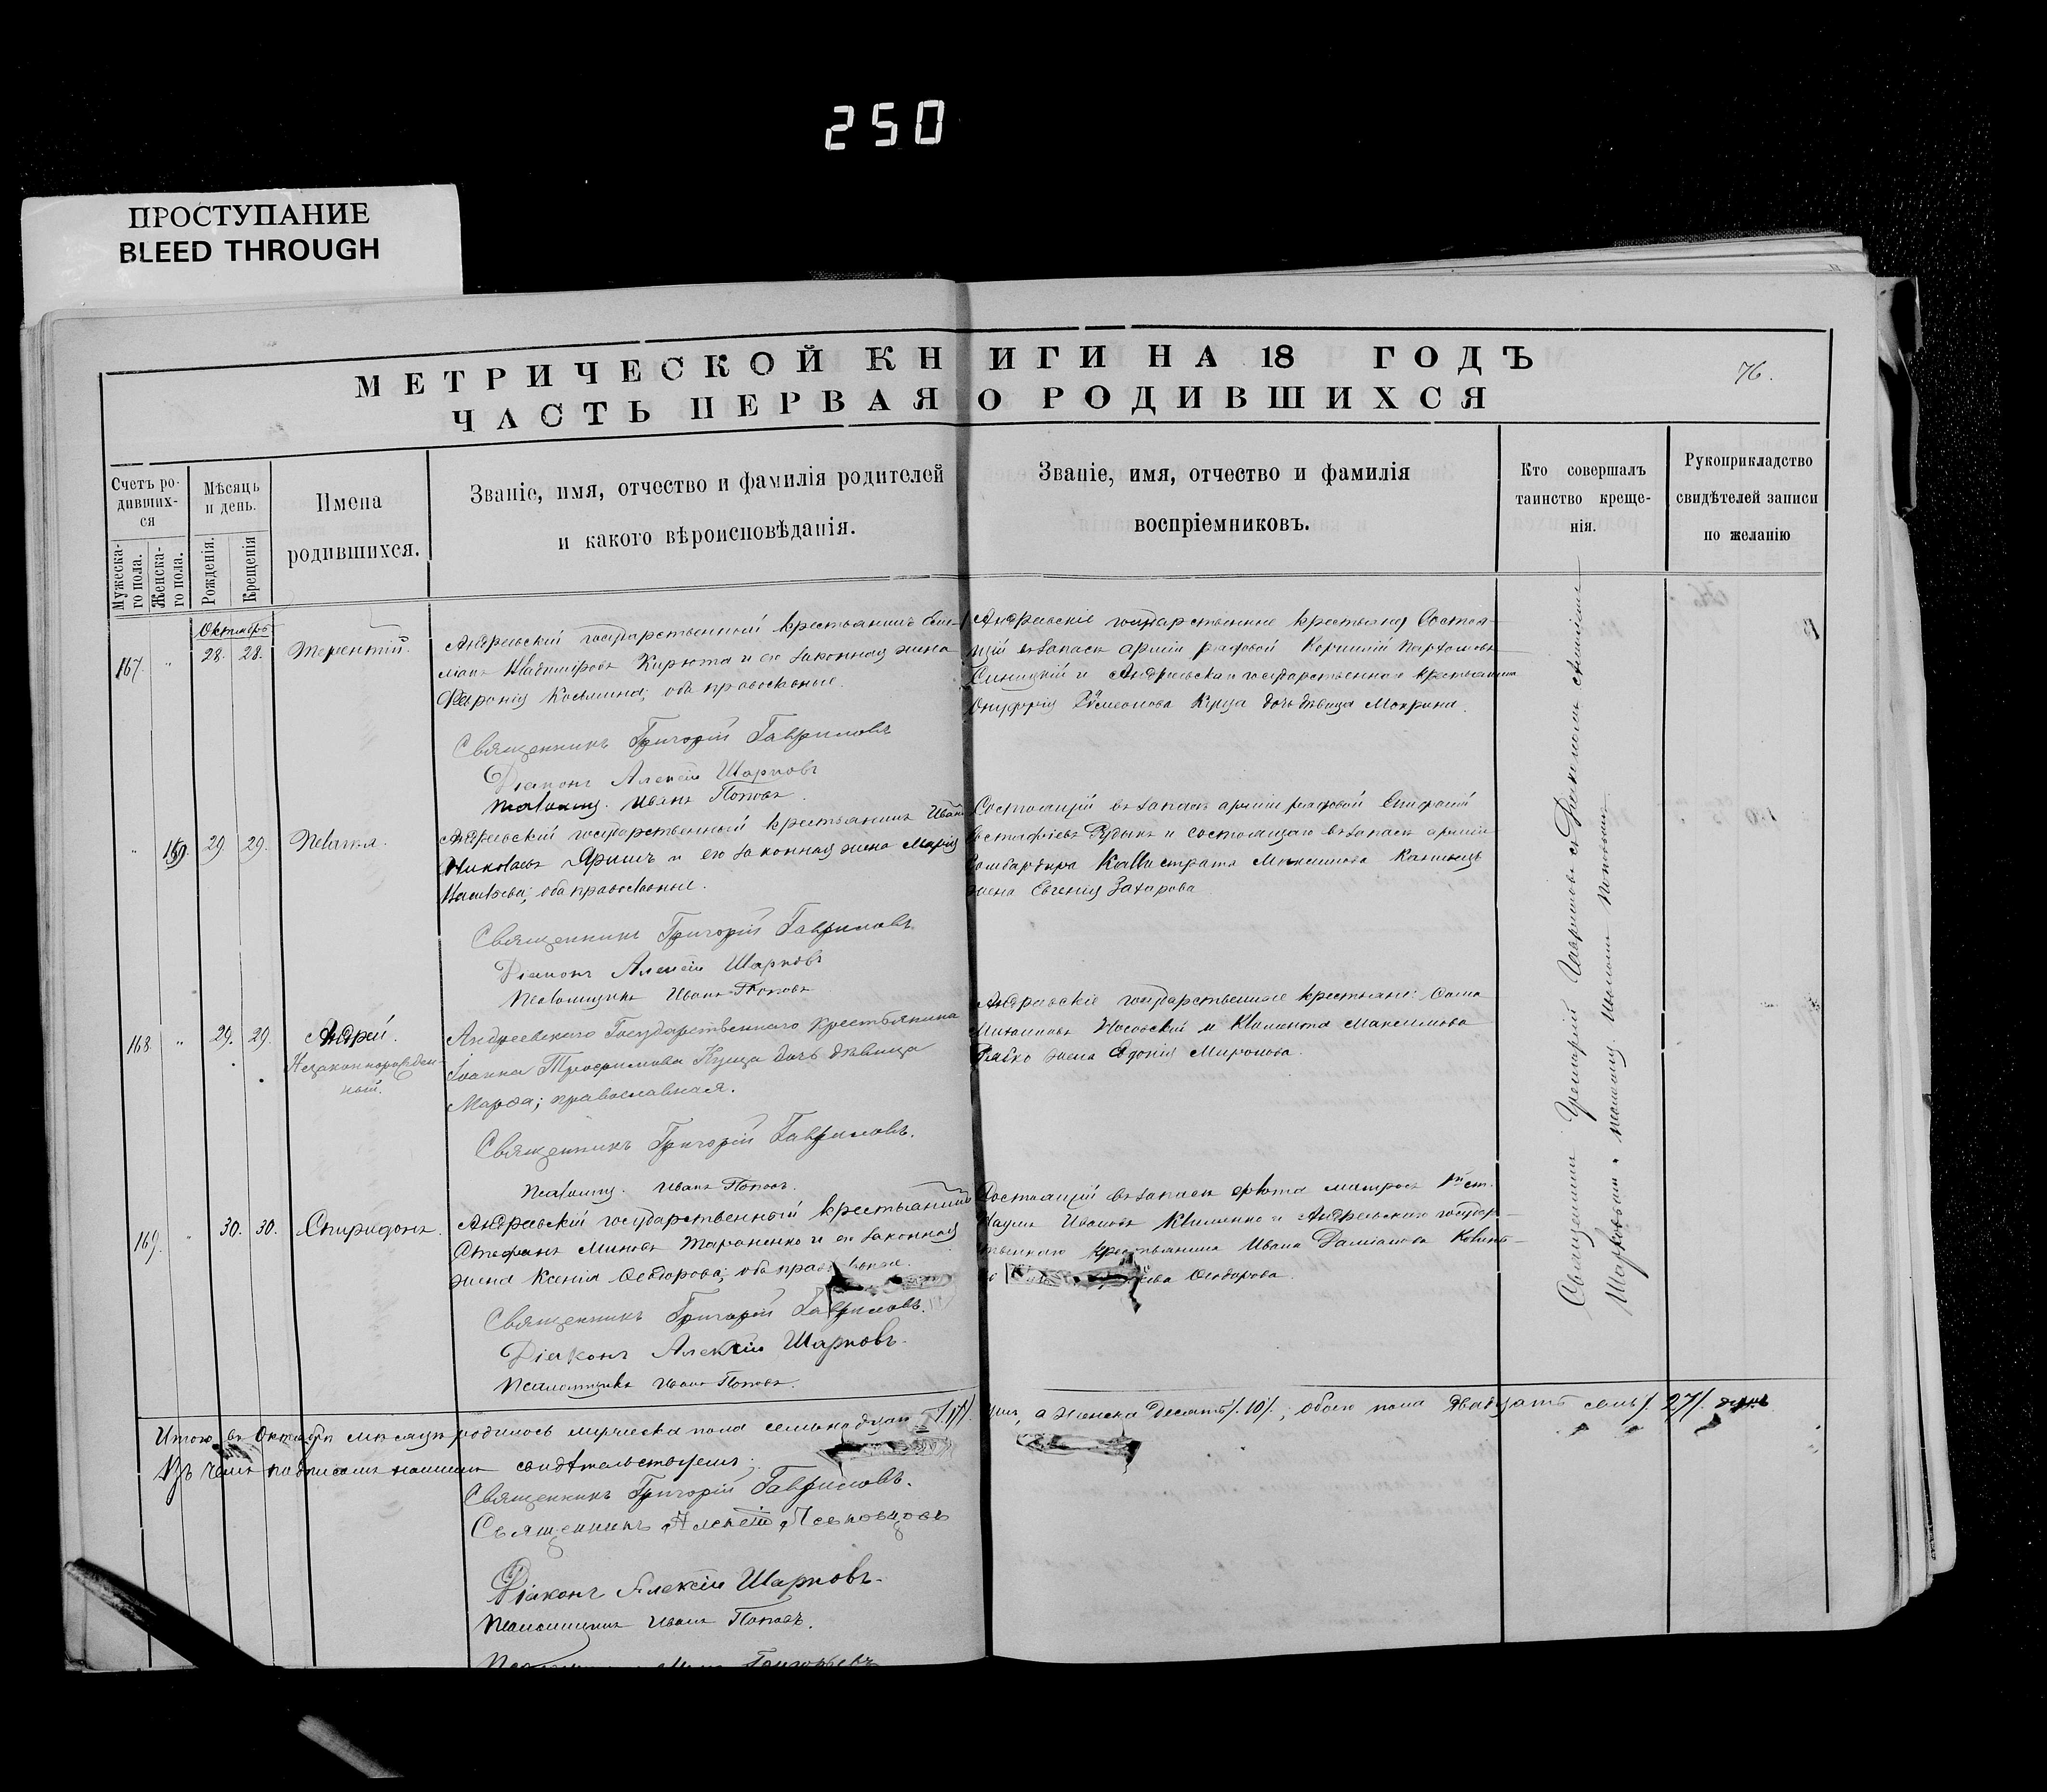 250
ПРОСТУПАНИЕ
BLEED THROUGH
МЕТРИЧЕСКОЙ КНИГИ НА 18 ГОДЪ
76.
ЧАСТЬ ПЕРВАЯ О РОДИВШИХСЯ
Счетъ ро-
дивших-
ся
Мужеска-
го пола.
Женска-
го пола.
Мѣсяцъ
и день.
Рожденія.
Крещенія
Имена
родившихся.
Званіе, имя, отчество и фамилія родителей
и какого вѣроисповѣданія.
Званіе, имя, отчество и фамилія
воспріемниковъ.
Кто совершалъ
таинство креще-
нія.
Рукоприкладство
свидѣтелей записи
по желанію
Октябрь
167. " 28. 28. Терентій.
Андреевскій государственный крестьянинъ
Кирюта и его законная жена
Февронія Косьмина; оба православные.
Андреевскіе государственные крестьяне: Состоя-
щій въ запасѣ арміи рядовой Корнилій
Синицкій и Андреевскаго государственнаго крестьянина
Онуфрія Симеонова Куца дочь дѣвица Мокрина.
Священникъ Григорій Гавриловъ
Діаконъ Алексій Шарковъ
Псаломщ. Иванъ Поповъ.
" 29 29. Пелагія.
Андреевскій государственный крестьянинъ Иванъ
Николаевъ Яришъ и его законная жена Марія
оба православные.
Состоящій въ запасѣ арміи рядовой Епифаній
Евстафіевъ Рудыкъ и состоящаго въ запасѣ арміи
бомбардира Каллистрата Максимова
жена Евгенія Захарова
Священникъ Григорій Гавриловъ.
Діаконъ Алексій Шарковъ
Псаломщикъ Иванъ Поповъ
168 " 29. 29. Андрей.
Незаконнорожден-
ный.
Андреевского Государственного крестьянина
Іоанна Трофимова Куца дочь дѣвица
Марѳа; православная.
Андреевскіе государственные крестьяне: Савва
Носовскій и Климента Максимова
жена Евдокія Миронова.
Священникъ Григорій Гавриловъ.
Псаломщ. Иванъ Поповъ.
169. " 30. 30. Спиридонъ.
Андреевскій государственный крестьянинъ
Стефанъ Миновъ Тараненко и его законная
жена Ксенія Ѳеодорова; оба
Состоящій въ запасѣ флота матросъ 1й ст.
Наумъ Ивановъ Клименко и Андреевскаго государ-
ственнаго крестьянина Ивана Даміанова
Ѳеодорова.
Священникъ Григорій Гавриловъ.
Діаконъ Алексій Шарковъ.
Псаломщикъ Иванъ Поповъ.
Священникъ Григорій Гавриловъ съ Діакономъ Алексіемъ
Шарковымъ и псаломщ. Иваномъ Поповымъ.
Итого въ Октябрѣ мѣсяцѣ родилось мужеска пола семьнадцать /17/ душъ, а женска десять /10/; обоего пола двадцать семь /27/ душъ
Въ чемъ подписомъ нашимъ свидѣтельствуемъ:
Священникъ Григорій Гавриловъ.
Священникъ Алексій
Діаконъ Алексій Шарковъ.
Псаломщикъ Иванъ Поповъ.
Григорьевъ